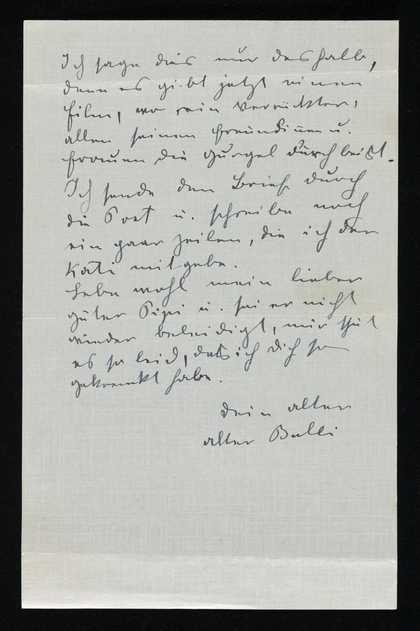 Ich sage dies nur deshalb,
denn es gibt jetzt einen
Film, wo ein Verrückter,
allen seinen Freundinen u.
Frauen die Gurgel durchbeizt.
Ich sende den Brief durch
die Post u. schreibe noch
ein paar Zeilen, die ich der
Kati mitgebe.
Lebe wohl mein lieber
guter Pipi u. sei er nicht
wieder beleidigt, mir thut
es so leid, daß ich dich so
gekraenkt habe.
dein alter
alter Bulli